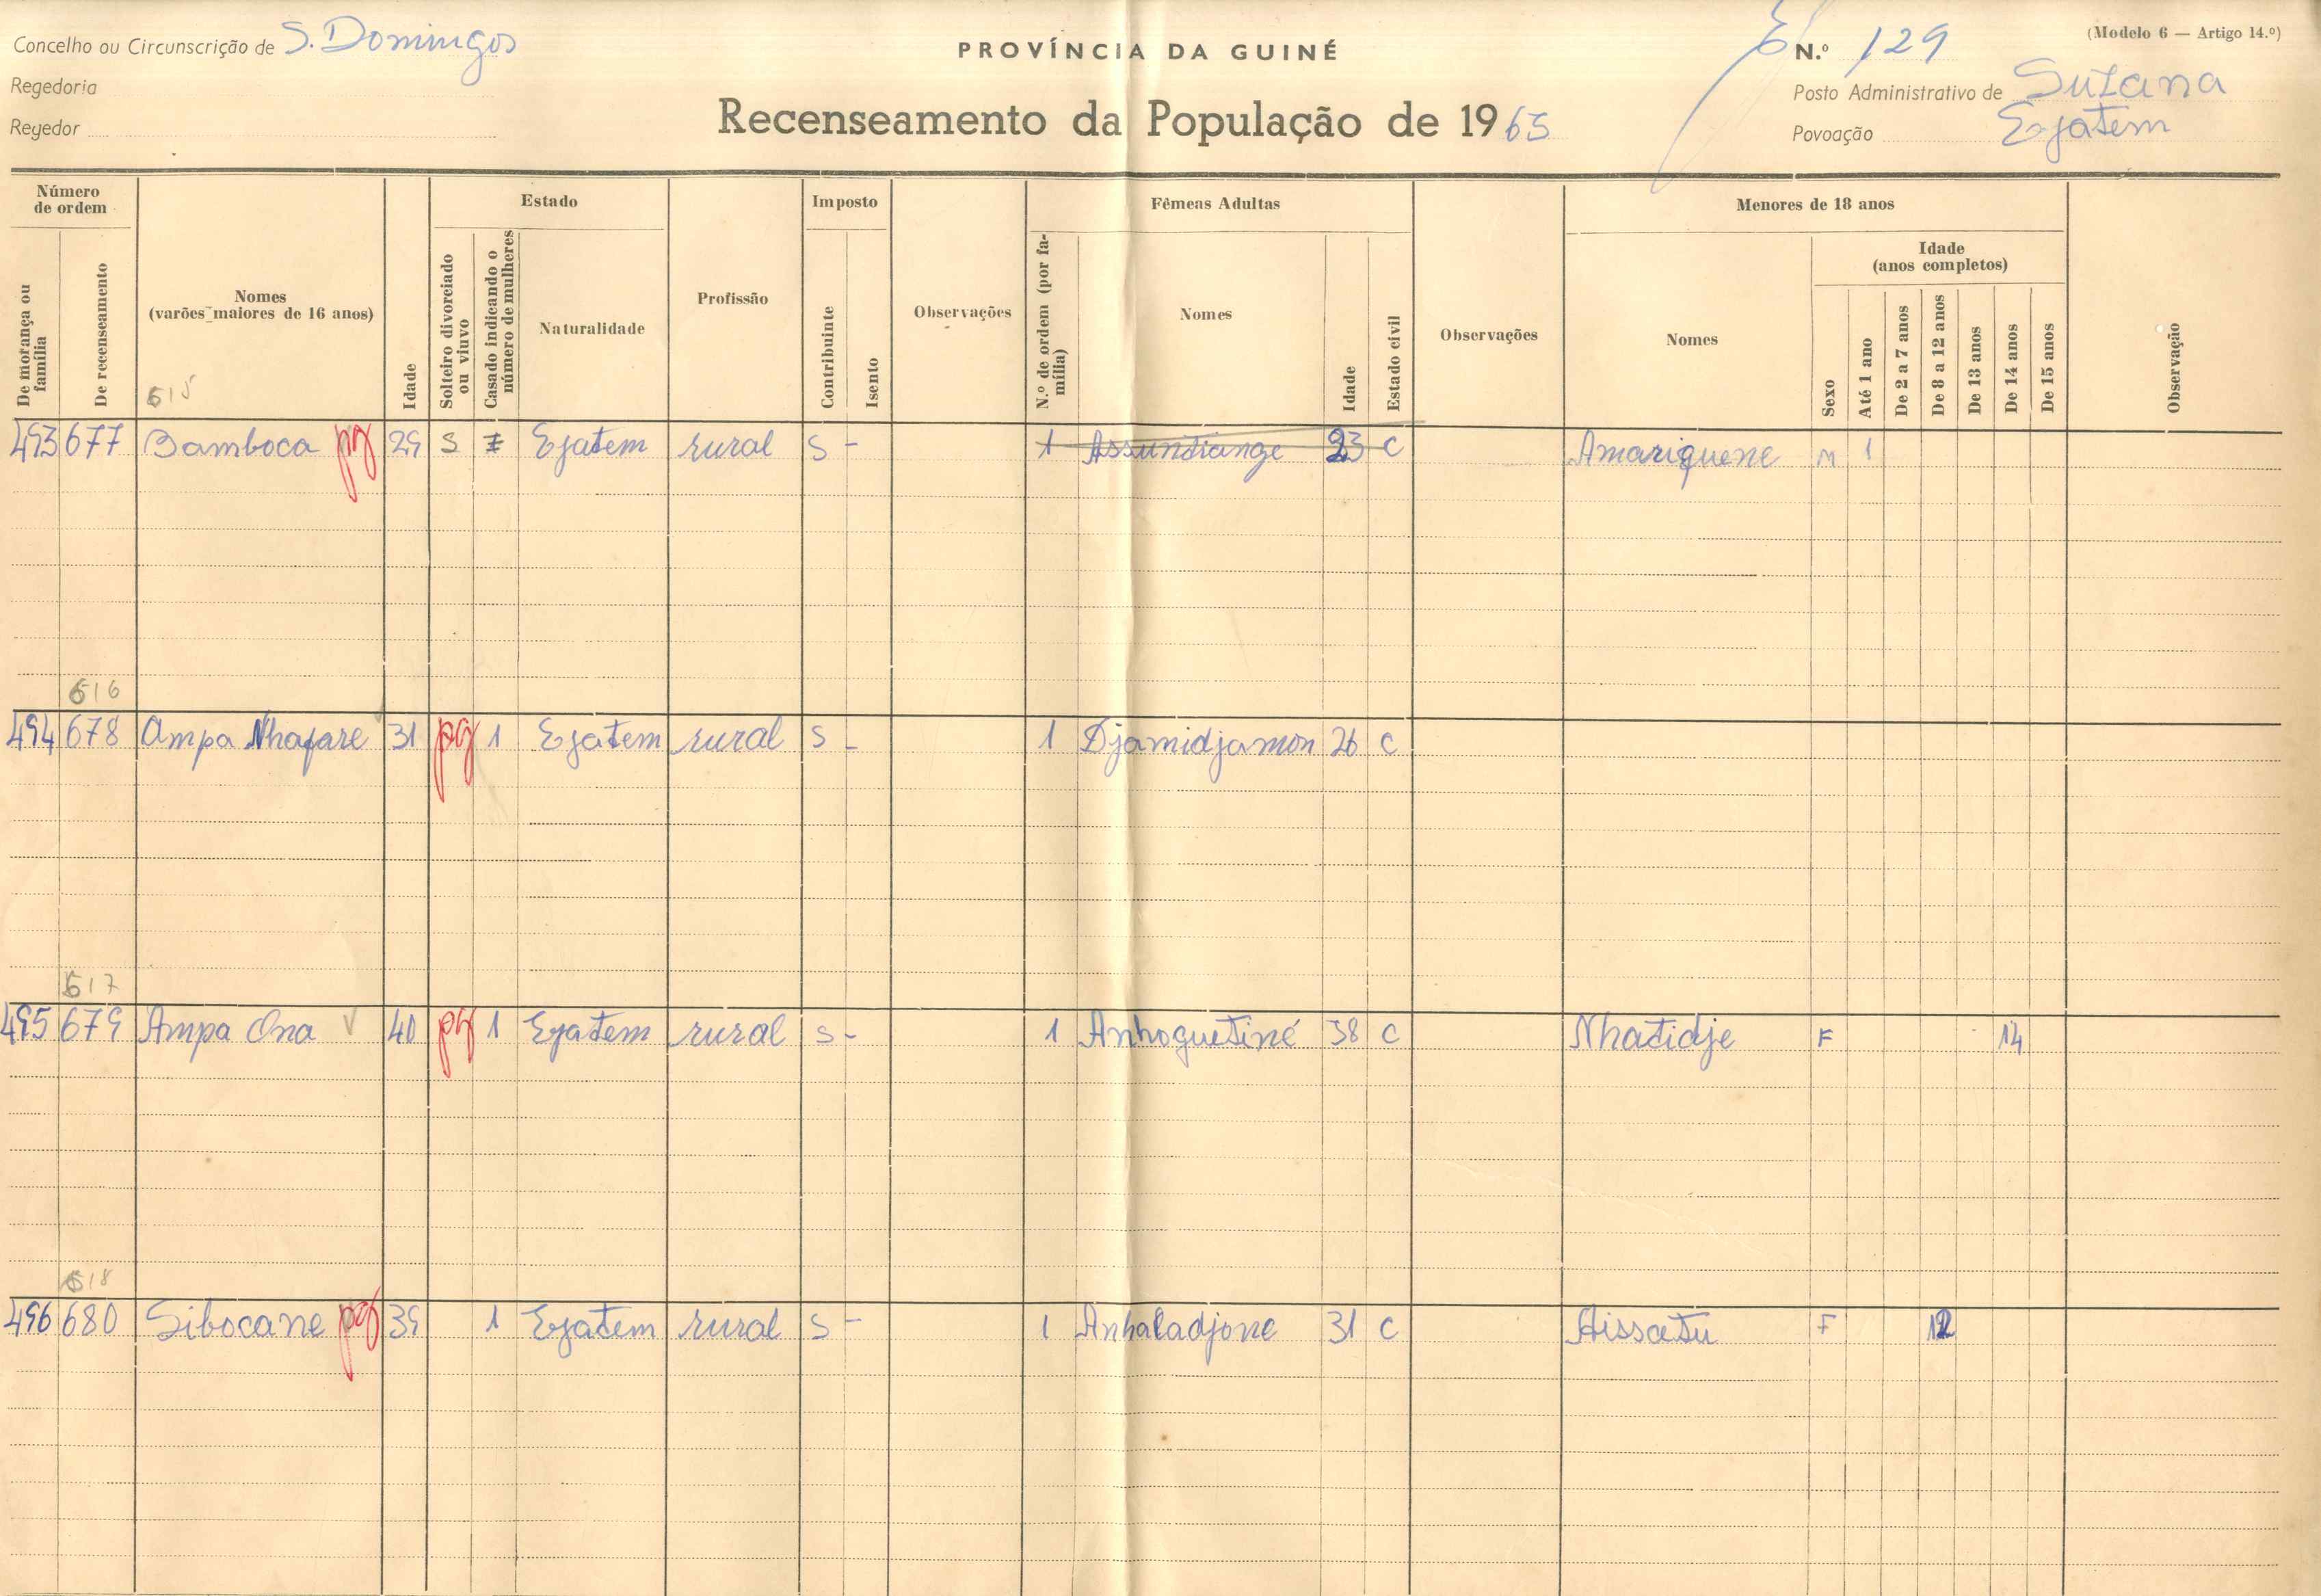 (Modelo 6 — Artigo 14.º)
Concelho ou Circunscrição de S. Domingos
PROVÍNCIA DA GUINÉ
N.º 129
Regedoria
Posto Administrativo de Suzana
Reyedor
Recenseamento da População de 1965
Povoação Ejatem
Número de ordem
Estado
Imposto
Fêmeas Adultas
Menores de 18 anos
Idade
(anos completos)
De morança ou família
De recenseamento
Nomes
(varões maiores de 16 anos)
Idade
Solteiro divorciado ou viuvo
Casado indicando o número de mulheres
Naturalidade
Profissão
Contribuinte
Isento
Observações
N.º de ordem (por família)
Nomes
Idade
Estado civil
Observações
Nomes
Sexo
Até 1 ano
De 2 a 7 anos
De 8 a 12 anos
De 13 anos
De 14 anos
De 15 anos
Observação
615
493 677 Bamboca pg 29 S 1 Ejatem rural S - 1 Assundiange 23 C Amariquene M 1
616
494 678 Ampa Nhafare 31 pg 1 Ejatem rural S - 1 Djamidjamon 26 C
617
495 679 Ampa Ona 40 pg 1 Ejatem rural S - 1 Anhoguetiné 38 C Nhatidje F 14
618
496 680 Sibocane pg 39 1 Ejatem rural S - 1 Anhaladjone 31 C Aissatu F 12